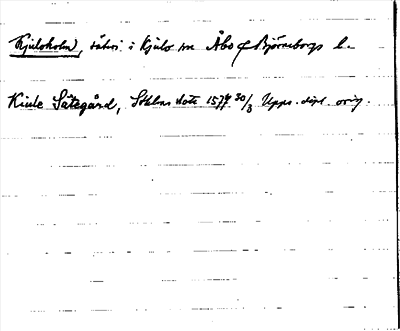 Kjuloholm, säteri i Kjulo sn Åbo o Björneborgs l.
Kiule Sätegård, Sthlms slott 1577 30/3 Upps. dipl. orig.